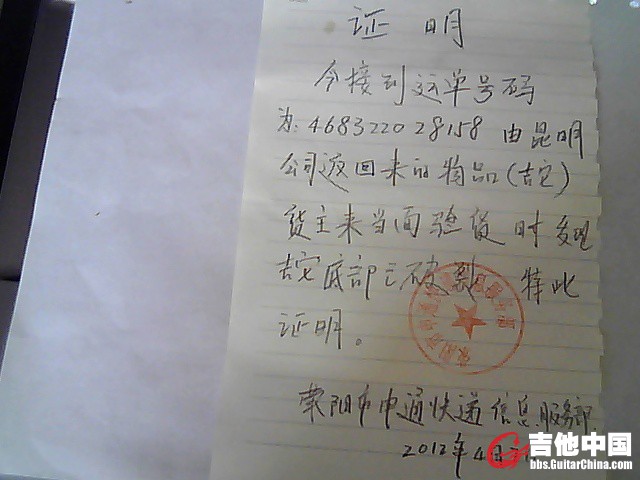 证明
今接到运单号码
为:468322028158由昆明
公司返回来的物品(吉它)
货主来当面验货时发现
吉它底部已破裂 特此
证明。
荥阳市中通快递信息服务部
2012年4月
吉他中国
bbs.GuitarChina.com